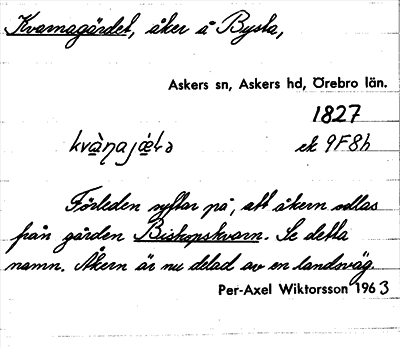 Kvarnagärdet, åker å Bysta,
Askers sn, Askers hd, Örebro län.
1827
ek 9F8h
Förleden syftar på, att åkern odlas
från gården Biskopskvarn. Se detta
namn. Åkern är nu delad av en landsväg.
Per-Axel Wiktorsson 1963